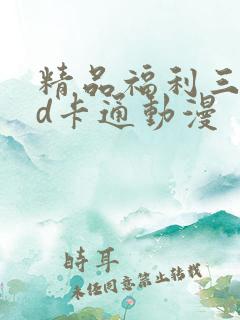 精品福利三
d卡通動漫
時耳
未經同意禁止轉載